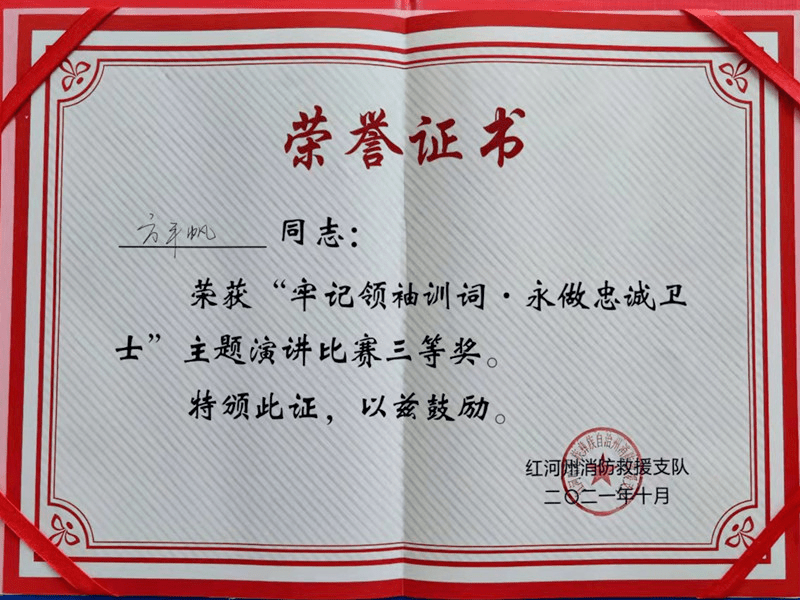 荣誉证书
方平帆 同志：
荣获“牢记领袖训词·永做忠诚卫
士”主题演讲比赛三等奖。
特颁此证，以兹鼓励。
红河州消防救援支队
二〇二一年十月